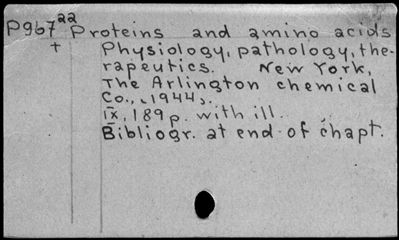 P967²² Proteins and amino acids
+ Physiology, pathology, the-
rapeutics. New York,
The Arlington chemical
Co., [1944].
ix, 189 p. with ill.
Bibliogr. at end of chapt.